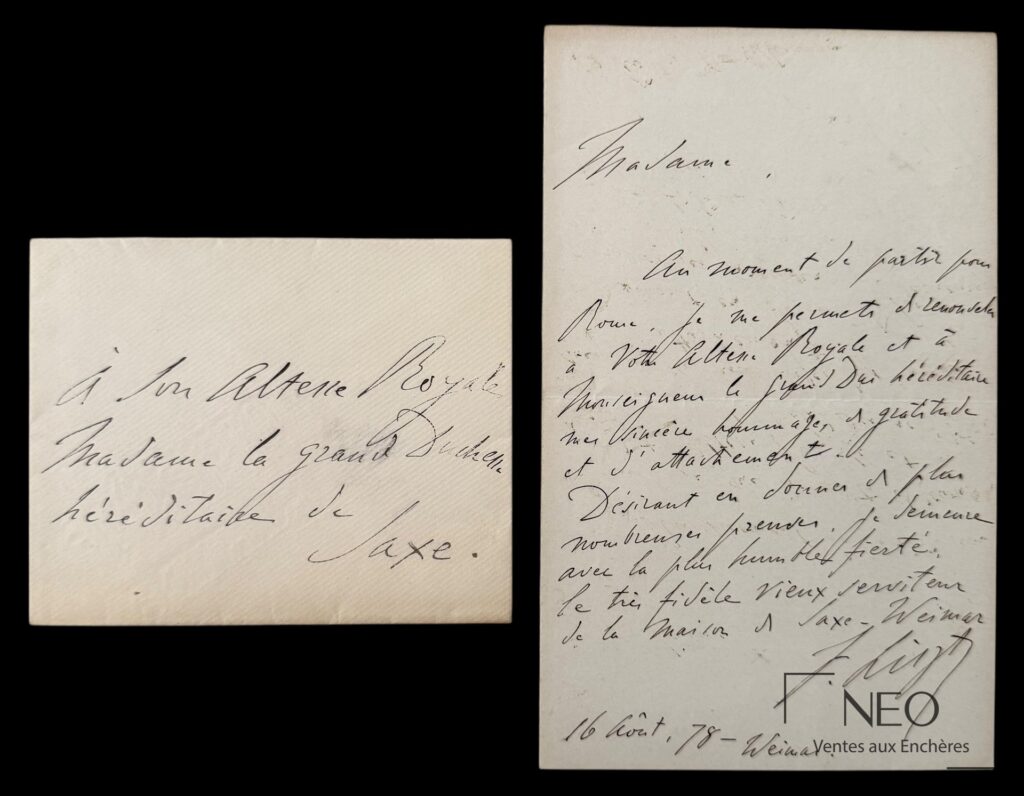 À Son Altesse Royale
Madame la grand Duchesse
héréditaire de
Saxe.
Madame,
Au moment de partir pour
Rome, je me permets de renouveler
à Votre Altesse Royale et à
Monseigneur le grand Duc héréditaire
mes sincères hommages de gratitude
et d'attachement.
Désirant en donner de plus
nombreuses preuves, je demeure
avec la plus humble fierté,
le très fidèle vieux serviteur
de la maison de Saxe-Weimar
F. Liszt
16 Août, 78 – Weimar.
NEO
Ventes aux Enchères